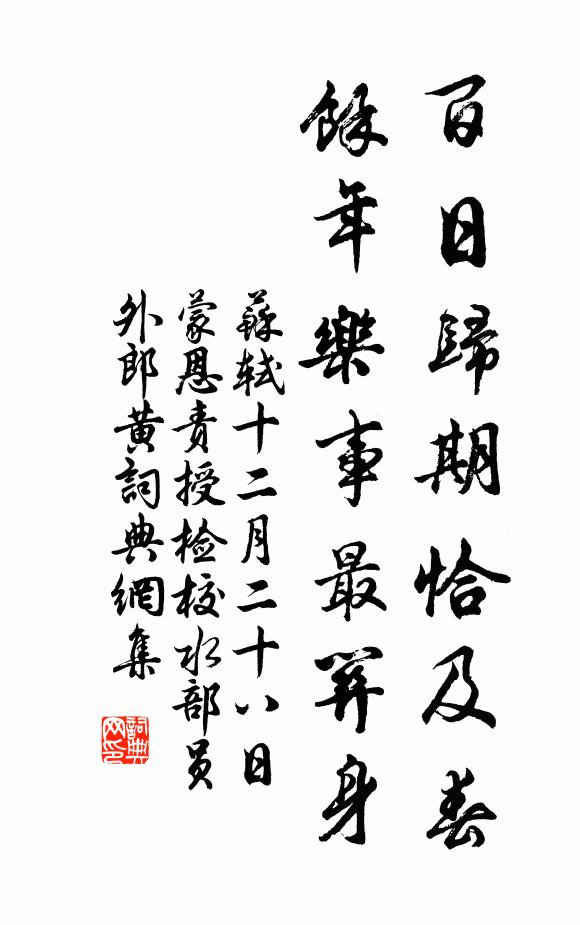 百日歸期恰及春
餘年樂事最關身
蘇軾十二月二十八日
蒙恩責授检校水部员
外郎黄詞典網集
詞典
网印